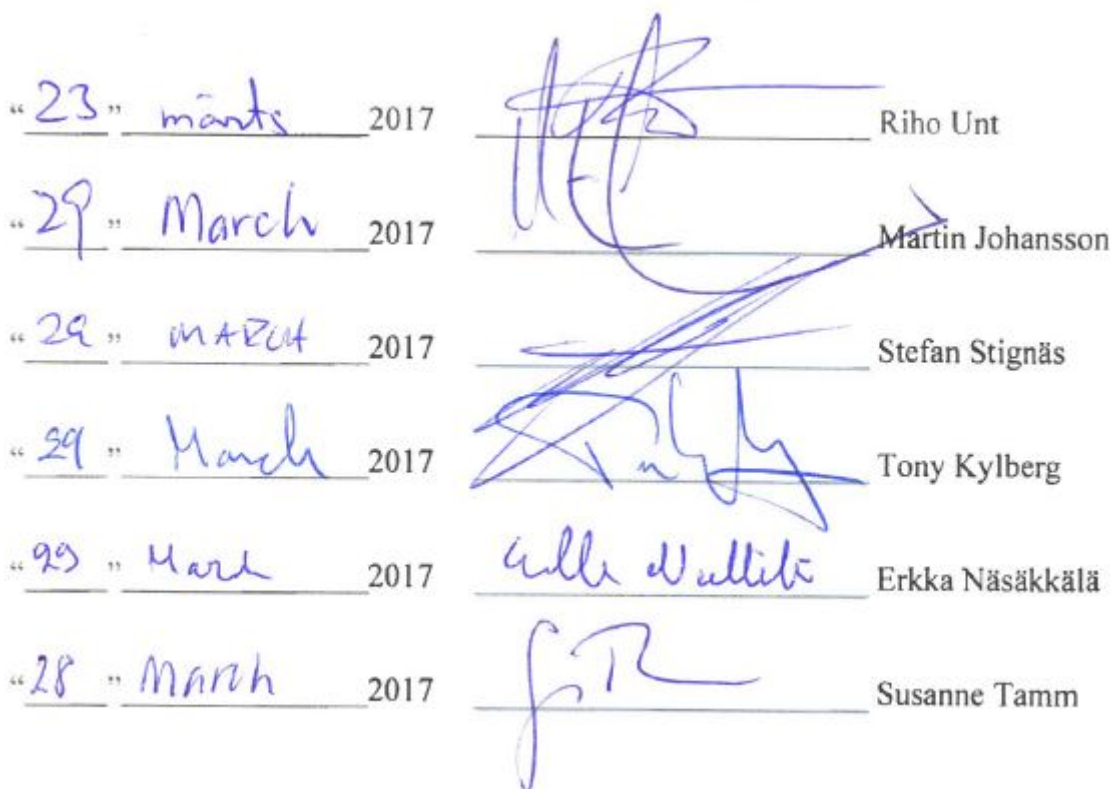 “23” märts 2017 Riho Unt
“29” March 2017 Martin Johansson
“29” MARCH 2017 Stefan Stignäs
“29” March 2017 Tony Kylberg
“29” March 2017 Erkka Näsäkkälä
“28” March 2017 Susanne Tamm